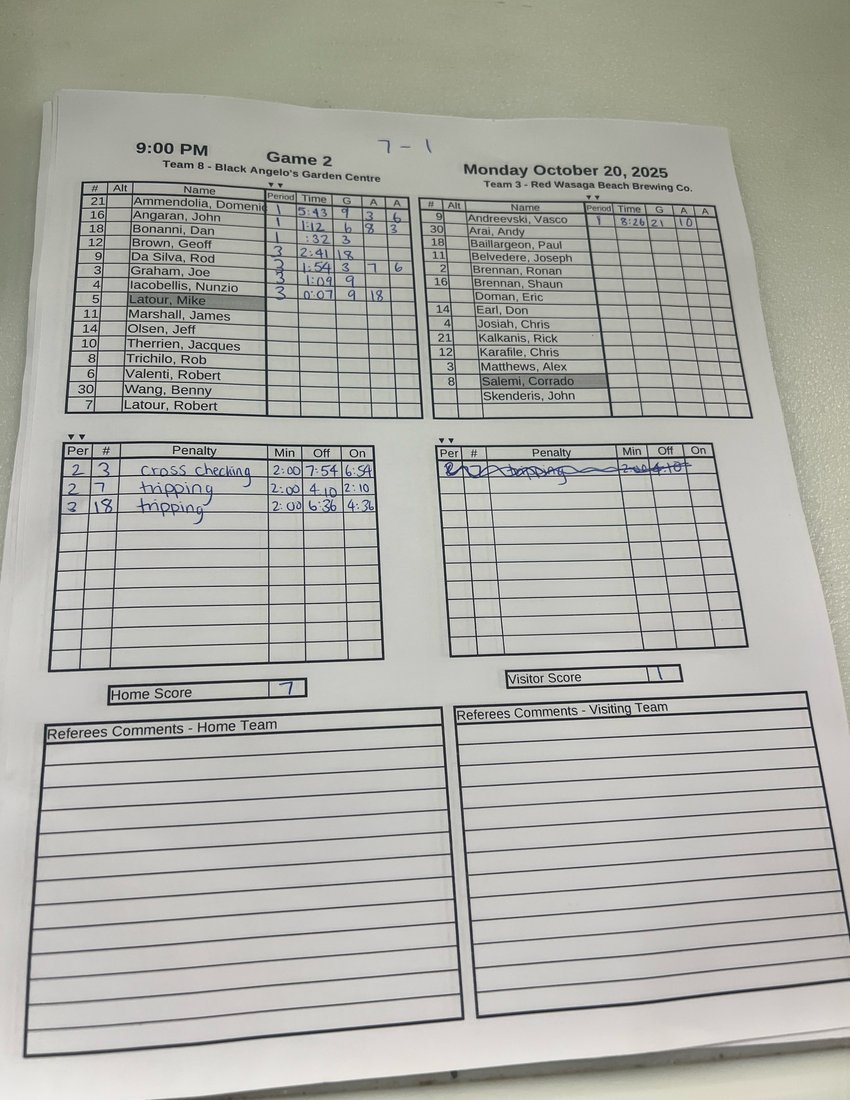 7 - 1
9:00 PM Game 2
Team 8 - Black Angelo's Garden Centre
# Alt Name Period Time G A A
21 Ammendolia, Domenic 1 5:43 9 3 6
16 Angaran, John 1 1:12 6 8 3
18 Bonanni, Dan 1 :32 3
12 Brown, Geoff 3 2:41 18
9 Da Silva, Rod 3 1:54 3 7 6
3 Graham, Joe 3 1:09 9
4 Iacobellis, Nunzio 3 0:07 9 18
5 Latour, Mike
11 Marshall, James
14 Olsen, Jeff
10 Therrien, Jacques
8 Trichilo, Rob
6 Valenti, Robert
30 Wang, Benny
7 Latour, Robert
Monday October 20, 2025
Team 3 - Red Wasaga Beach Brewing Co.
# Alt Name Period Time G A A
9 Andreevski, Vasco 1 8:26 21 10
30 Arai, Andy
18 Baillargeon, Paul
11 Belvedere, Joseph
2 Brennan, Ronan
16 Brennan, Shaun
Doman, Eric
14 Earl, Don
4 Josiah, Chris
21 Kalkanis, Rick
12 Karafile, Chris
3 Matthews, Alex
8 Salemi, Corrado
Skenderis, John
Per # Penalty Min Off On
2 3 cross checking 2:00 7:54 6:54
2 7 tripping 2:00 4:10 2:10
3 18 tripping 2:00 6:36 4:36
Per # Penalty Min Off On
2 7 tripping 2:00 4:10
Home Score 7
Visitor Score 1
Referees Comments - Home Team
Referees Comments - Visiting Team